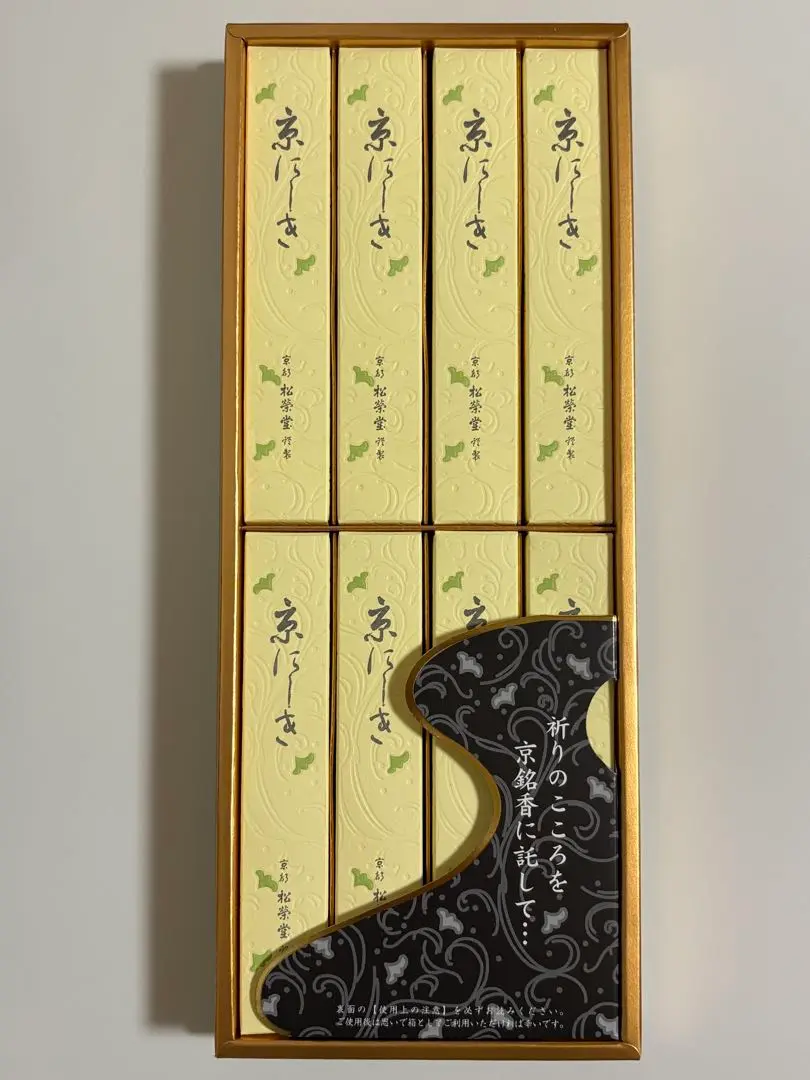 京にしき
京都 松榮堂 謹製
京にしき
京都 松榮堂 謹製
京にしき
京都 松榮堂 謹製
京にしき
京都 松榮堂 謹製
京にしき
京都 松榮堂
京にしき
京都 松
京
祈りのこころを
京銘香に託して…
裏面の【使用上の注意】を必ずお読みください。
ご使用後は思いで箱としてご利用いただければ幸いです。